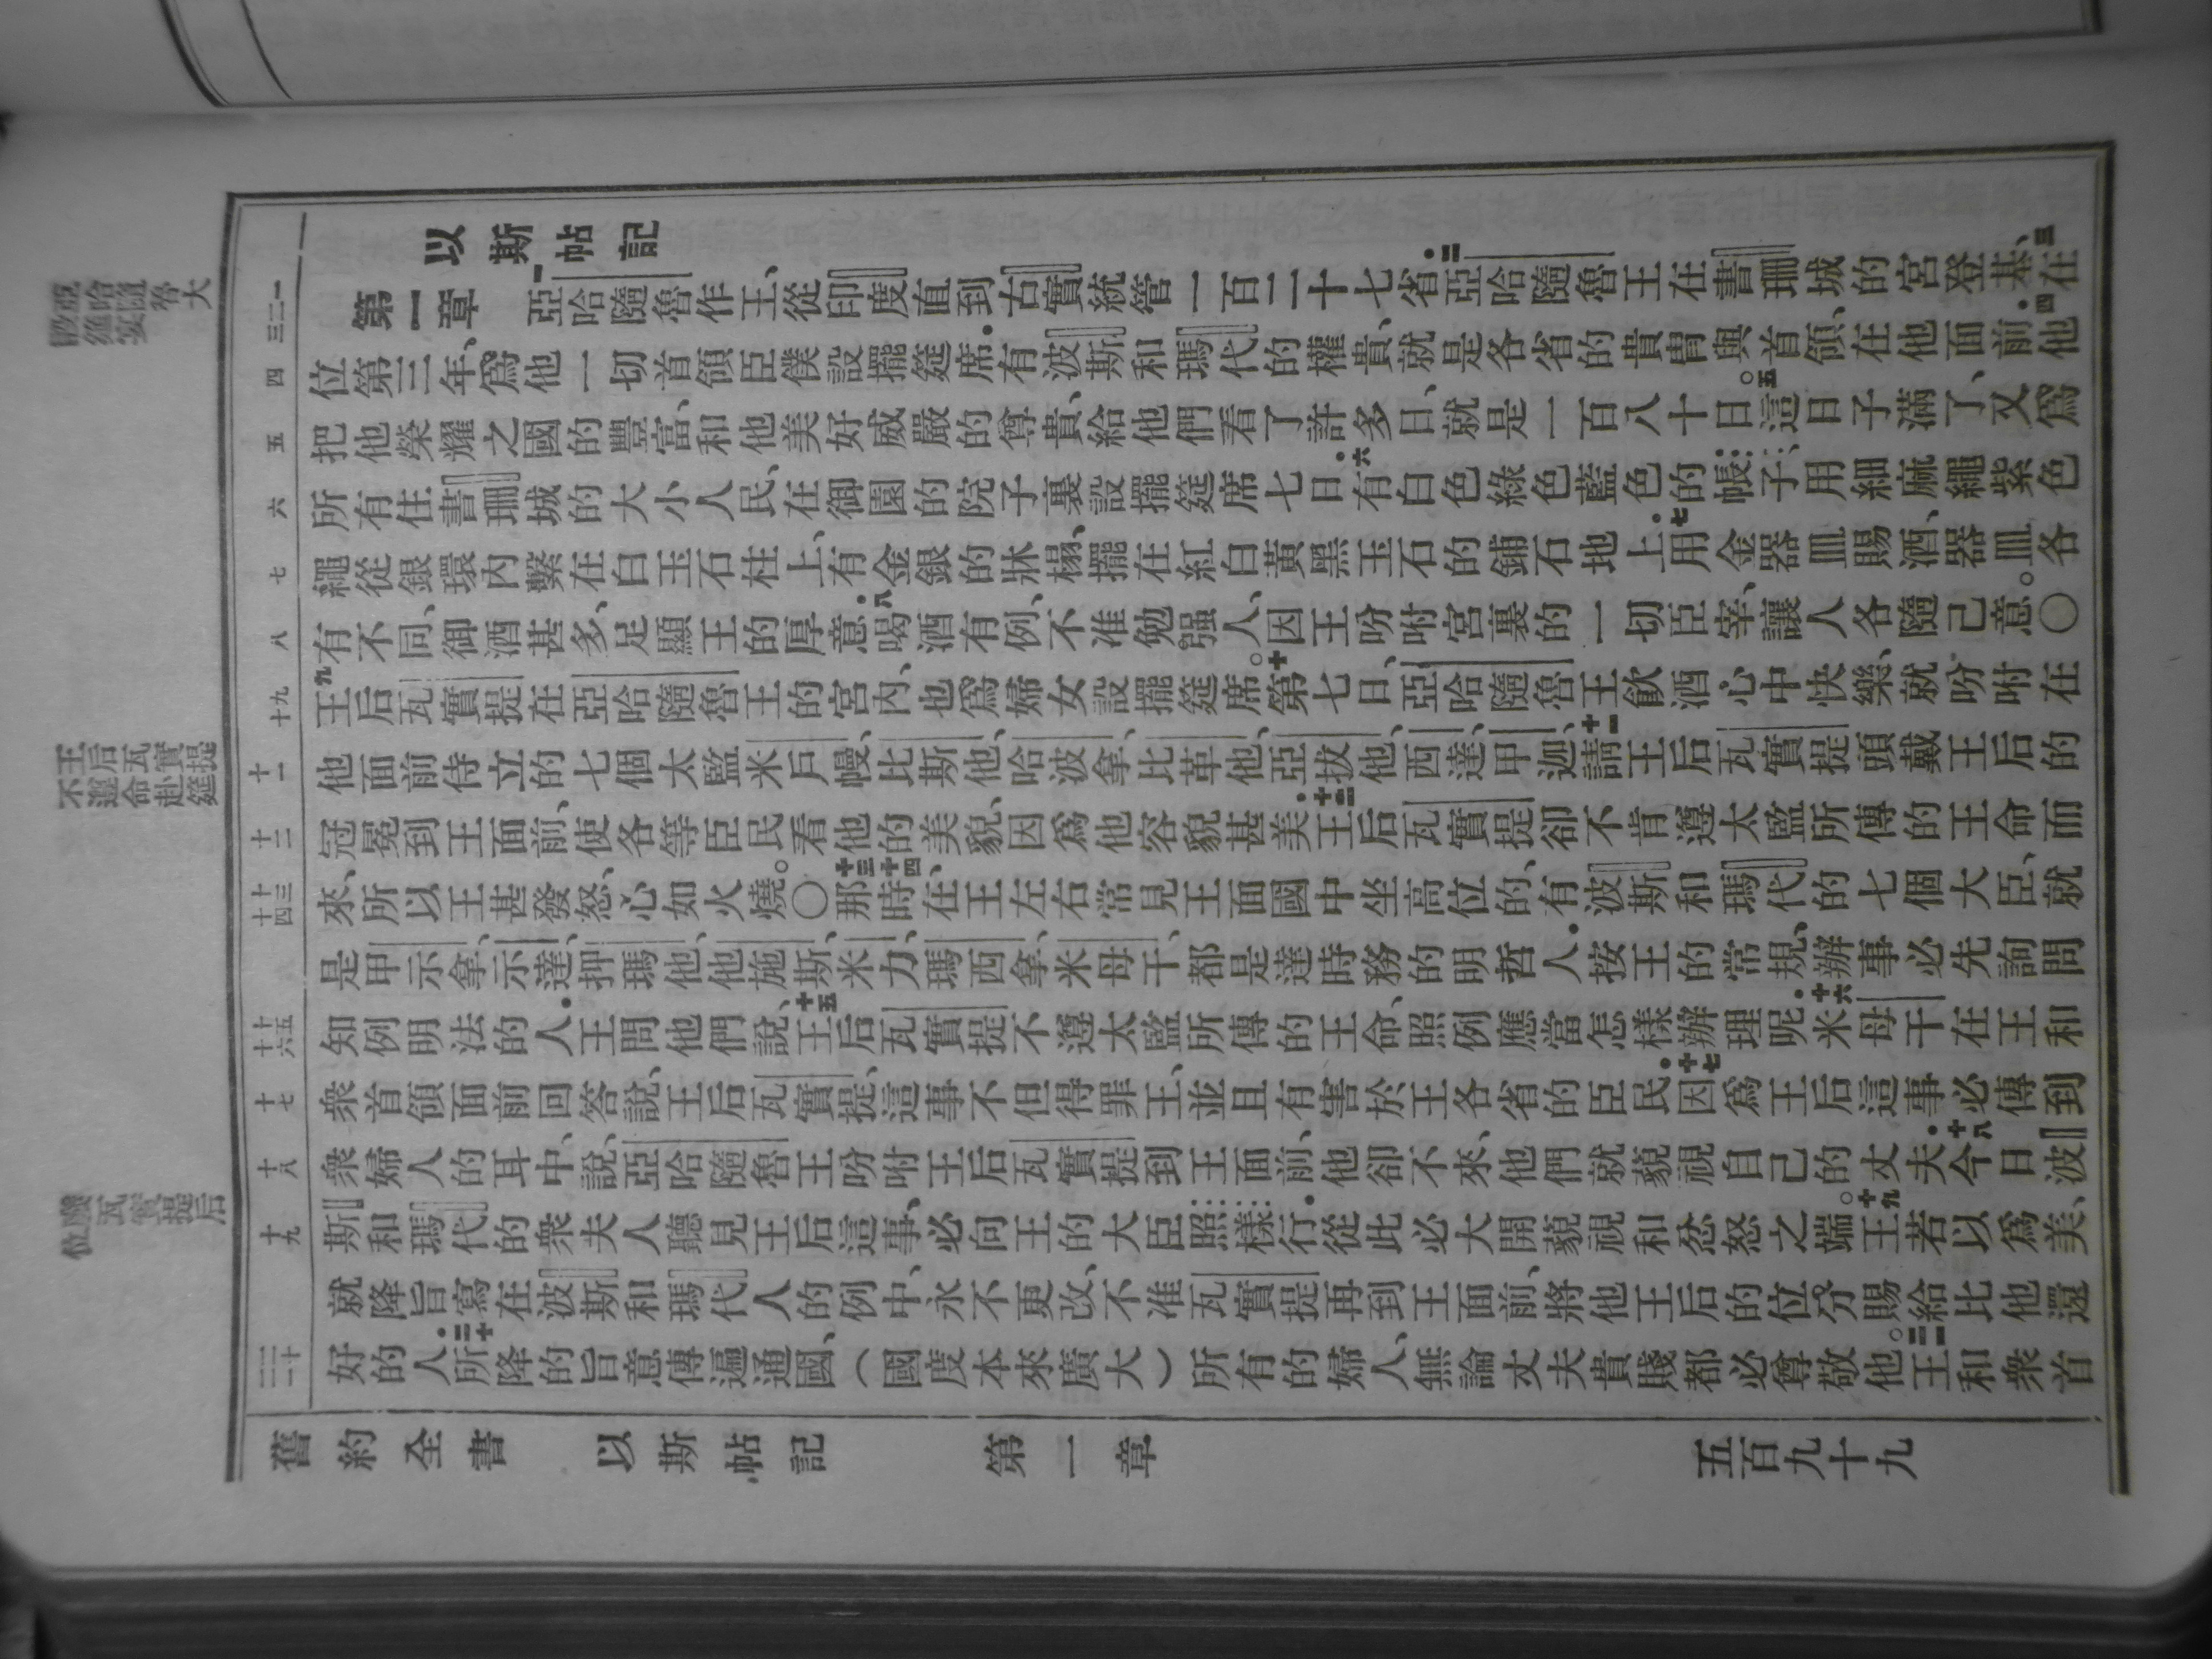 以斯帖記
第一章 一亞哈隨魯作王、從印度直到古實統管一百二十七省．二亞哈隨魯王在書珊城的宮登基、三在
位第三年、爲他一切首領臣僕設擺筵席．有波斯和瑪代的權貴、就是各省的貴冑與首領、在他面前．四他
把他榮耀之國的豐富、和他美好威嚴的尊貴、給他們看了許多日、就是一百八十日。五這日子滿了、又爲
所有住書珊城的大小人民、在御園的院子裏設擺筵席七日．六有白色綠色藍色的帳子、用細麻繩紫色
繩從銀環內繫在白玉石柱上、有金銀的牀榻、擺在紅白黃黑玉石的鋪石地上．七用金器皿賜酒、器皿各
有不同、御酒甚多、足顯王的厚意．八喝酒有例、不准勉强人、因王吩咐宮裏的一切臣宰、讓人各隨己意。○
九王后瓦實提在亞哈隨魯王的宮內、也爲婦女設擺筵席。十第七日、亞哈隨魯王飲酒心中快樂、就吩咐在
他面前侍立的七個太監米戶幔、比斯他、哈波拿、比革他、亞拔他、西達、甲迦、十一請王后瓦實提頭戴王后的
冠冕到王面前、使各等臣民看他的美貌、因爲他容貌甚美．十二王后瓦實提卻不肯遵太監所傳的王命而
來、所以王甚發怒、心如火燒。○十三十四那時、在王左右常見王面國中坐高位的、有波斯和瑪代的七個大臣、就
是甲示拿、示達、押瑪他、他施斯、米力、瑪西拿、米母干、都是達時務的明哲人．按王的常規、辦事必先詢問
知例明法的人．王問他們說、十五王后瓦實提不遵太監所傳的王命、照例應當怎樣辦理呢．十六米母干在王和
衆首領面前回答說、王后瓦實提、這事不但得罪王、並且有害於王各省的臣民．十七因爲王后這事必傳到
衆婦人的耳中、說、亞哈隨魯王吩咐王后瓦實提到王面前、他卻不來、他們就藐視自己的丈夫．十八今日波
斯和瑪代的衆夫人聽見王后這事、必向王的大臣照樣行．從此必大開藐視和忿怒之端。十九王若以爲美、
就降旨寫在波斯和瑪代人的例中、永不更改、不准瓦實提再到王面前、將他王后的位分賜給比他還
好的人．二十所降的旨意傳遍通國、（國度本來廣大）所有的婦人、無論丈夫貴賤都必尊敬他。二一王和衆首
三二一
四
五
六
七
八
十九
十一
十二
十四十三
十六十五
十七
十八
十九
二一二十
亞哈隨魯大
設筵宴
王后瓦實提
不遵命赴筵
廢瓦實提后
位
舊約全書 以斯帖記 第一章 五百九十九